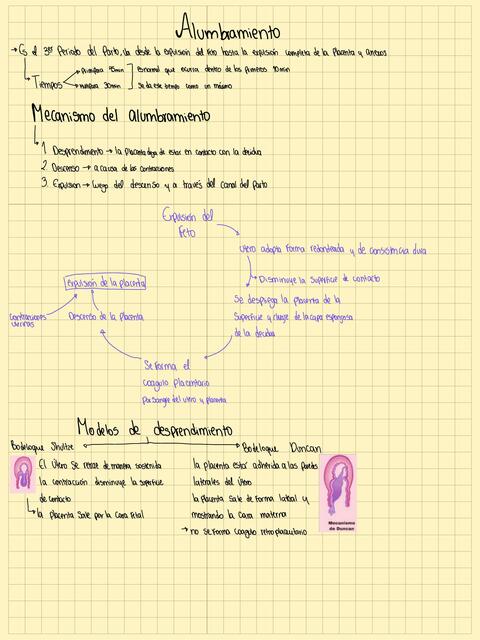 Alumbramiento
→ Es el 3er Periodo del Parto, va desde la expulsion del feto hasta la expulsión completa de la Placenta y anexos
Tiempos
Primipara 45min
Multipara 30min
Es normal que ocurra dentro de los Primeros 10min
Se da ese tiempo como un máximo
Mecanismo del alumbramiento
1. Desprendimiento → la Placenta deja de estar en contacto con la decidua
2. Descenso → a causa de las contracciones
3. Expulsion → luego del descenso y a través del canal del Parto
Expulsión del
feto
Utero adopta forma redondeada y de consistencia dura
Disminuye la superficie de contacto
Se despliega la Placenta de la
Superficie y de la capa esponjosa
de la decidua
Se forma el
coagulo placentario
Por sangre del utero y placenta
Descenso de la Placenta
Contracciones
uterinas
expulsión de la placenta
Modelos de desprendimiento
Bodeloque Shultze
El Utero se retrae de manera sostenida
la contracción disminuye la superficie
de contacto
la Placenta Sale por la Cara Fetal
Bodeloque Duncan
la placenta estar adherida a las Paredes
laterales del Utero
la Placenta Sale de forma lateral y
mostrando la cara materna
→ no se forma Coagulo retroplacentario
Mecanismo
de Duncan